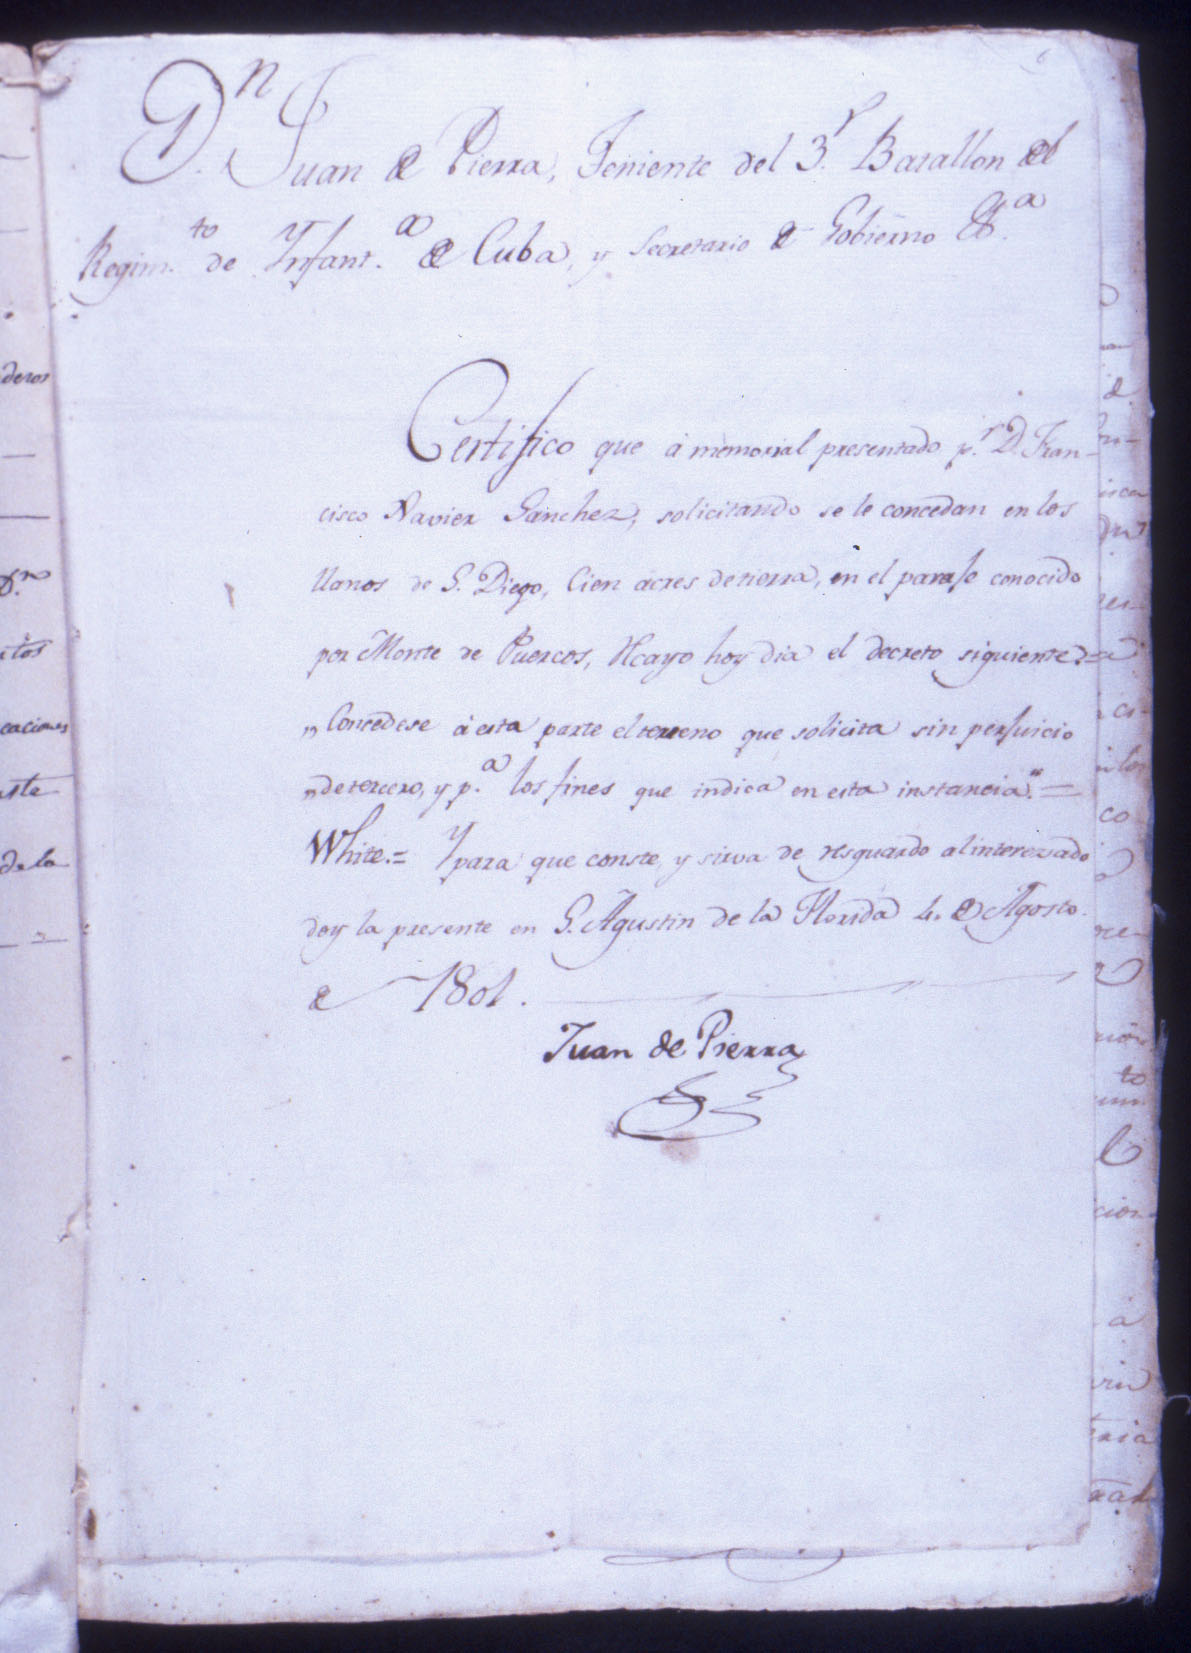 6
Dn. Juan de Pierra, Teniente del 3r. Batallon del
Regimto. de Ynfanta. de Cuba, y Secretario de Gobierno &a.
Certifico que á memorial presentado pr. D. Fran-
cisco Xavier Sanchez, solicitando se le concedan en los
llanos de S. Diego, Cien acres de tierra, en el paraje conocido
por Monte de Puercos, Recayo hoy dia el decreto siguiente.=
„Concedese á esta parte el terreno que solicita sin perjuicio
„de tercero, y pa. los fines que indica en esta instancia."=
White.= Y para que conste, y sirva de resguardo al interesado
doy la presente en S. Agustin de la Florida 4. de Agosto
de 1801.
Juan de Pierra
deros
Dn.
itos
caciones
ste
de la